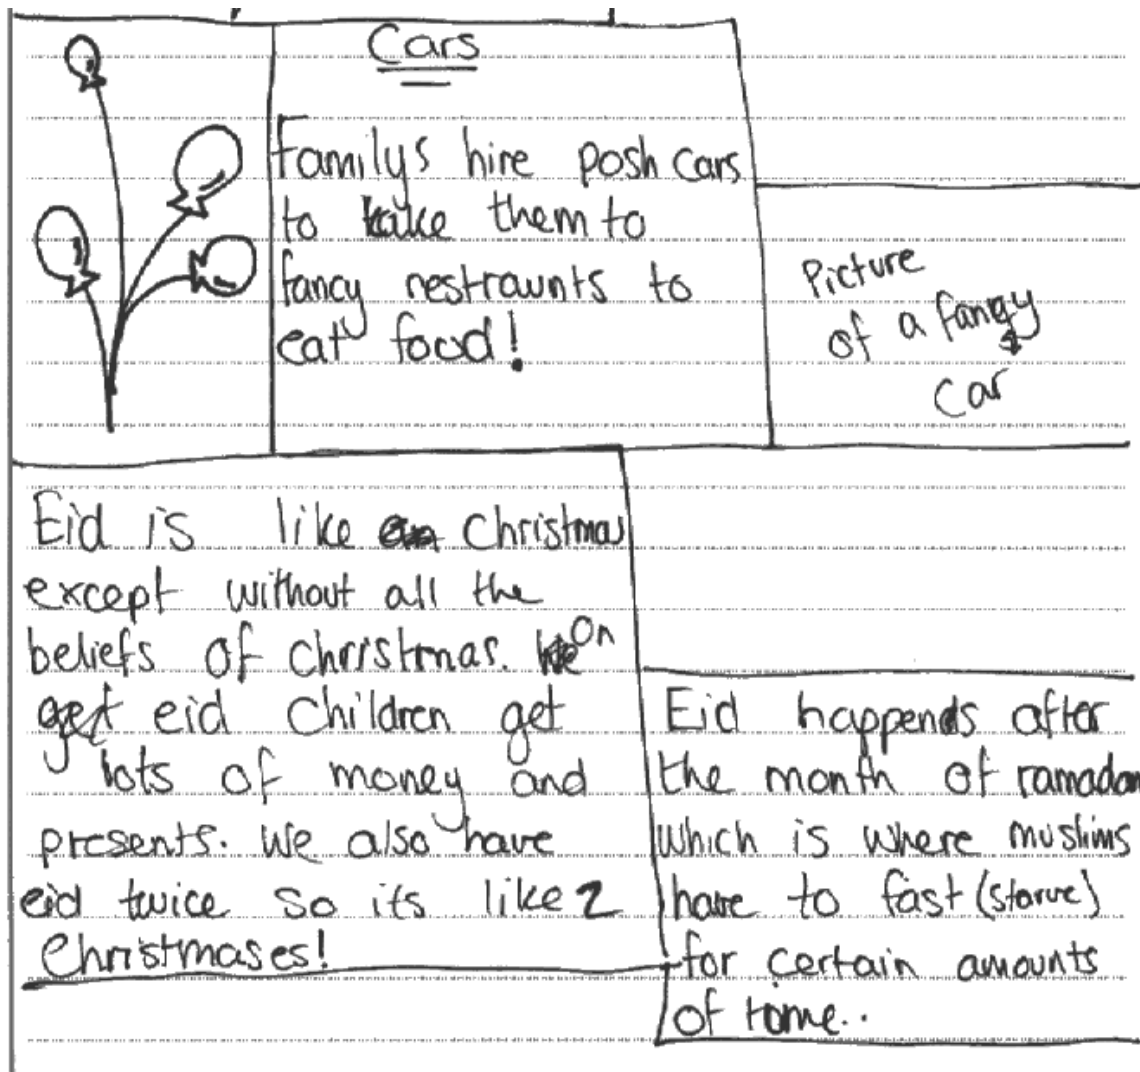 Cars
Familys hire posh cars
to take them to
fancy restraunts to
eat food!
Picture
of a fancy
car
Eid is like Christmas
except without all the
beliefs of christmas. On
eid children get
lots of money and
presents. We also have
eid twice so its like 2
Christmases!
Eid happends after
the month of ramadan
which is where muslims
have to fast (starve)
for certain amounts
of time..